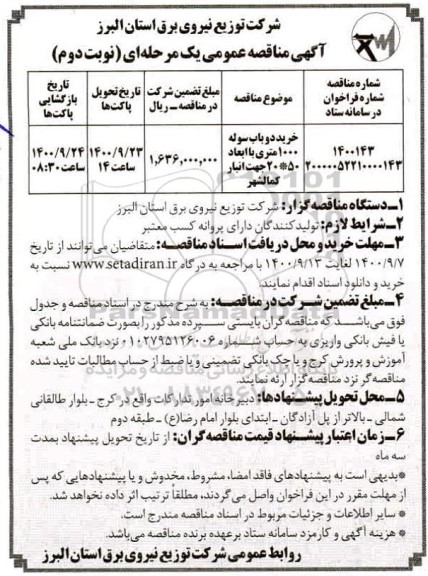 شرکت توزیع نیروی برق استان البرز
آگهی مناقصه عمومی یک مرحله‌ای (نوبت دوم)
شماره مناقصه
شماره فراخوان
در سامانه ستاد
موضوع مناقصه
مبلغ تضمین شرکت
در مناقصه ـ ریال
تاریخ تحویل
پاکت‌ها
تاریخ
بازگشایی
پاکت‌ها
۱۴۰۰۱۴۳
۲۰۰۰۰۰۵۲۲۱۰۰۰۱۴۳
خرید دو باب سوله
۱۰۰۰ متری با ابعاد
۵۰*۲۰ جهت انبار
کمالشهر
۱,۶۳۶,۰۰۰,۰۰۰
۱۴۰۰/۹/۲۳
ساعت ۱۴
۱۴۰۰/۹/۲۴
ساعت ۰۸:۳۰
۱ـ دستگاه مناقصه گزار: شرکت توزیع نیروی برق استان البرز
۲ـ شرایط لازم: تولیدکنندگان دارای پروانه کسب معتبر
۳ـ مهلت خرید و محل دریافت اسناد مناقصه: متقاضیان می‌توانند از تاریخ
۱۴۰۰/۹/۷ لغایت ۱۴۰۰/۹/۱۳ با مراجعه به درگاه www.setadiran.ir نسبت به
خرید و دانلود اسناد اقدام نمایند.
۴ـ مبلغ تضمین شرکت در مناقصه: به شرح مندرج در اسناد مناقصه و جدول
فوق می‌باشد که مناقصه گران بایستی سپرده مذکور را بصورت ضمانتنامه بانکی
یا فیش بانکی واریزی به حساب شماره ۰۱۰۲۷۹۵۱۲۶۰۰۶ نزد بانک ملی شعبه
آموزش و پرورش کرج و یا چک بانکی تضمینی و یا ضبط از حساب مطالبات تایید شده
مناقصه‌گر نزد مناقصه گزار ارئه نمایند.
۵ـ محل تحویل پیشنهادها: دبیرخانه امور تدارکات واقع در کرج ـ بلوار طالقانی
شمالی ـ بالاتر از پل آزادگان ـ ابتدای بلوار امام رضا(ع) ـ طبقه دوم
۶ـ زمان اعتبار پیشنهاد قیمت مناقصه گران: از تاریخ تحویل پیشنهاد بمدت
سه ماه
*بدیهی است به پیشنهادهای فاقد امضاء، مشروط، مخدوش و یا پیشنهادهایی که پس
از مهلت مقرر در این فراخوان واصل می‌گردند، مطلقاً ترتیب اثر داده نخواهد شد.
* سایر اطلاعات و جزئیات مربوط در اسناد مناقصه مندرج است.
* هزینه آگهی و کارمزد سامانه ستاد برعهده برنده مناقصه می‌باشد.
روابط عمومی شرکت توزیع نیروی برق استان البرز